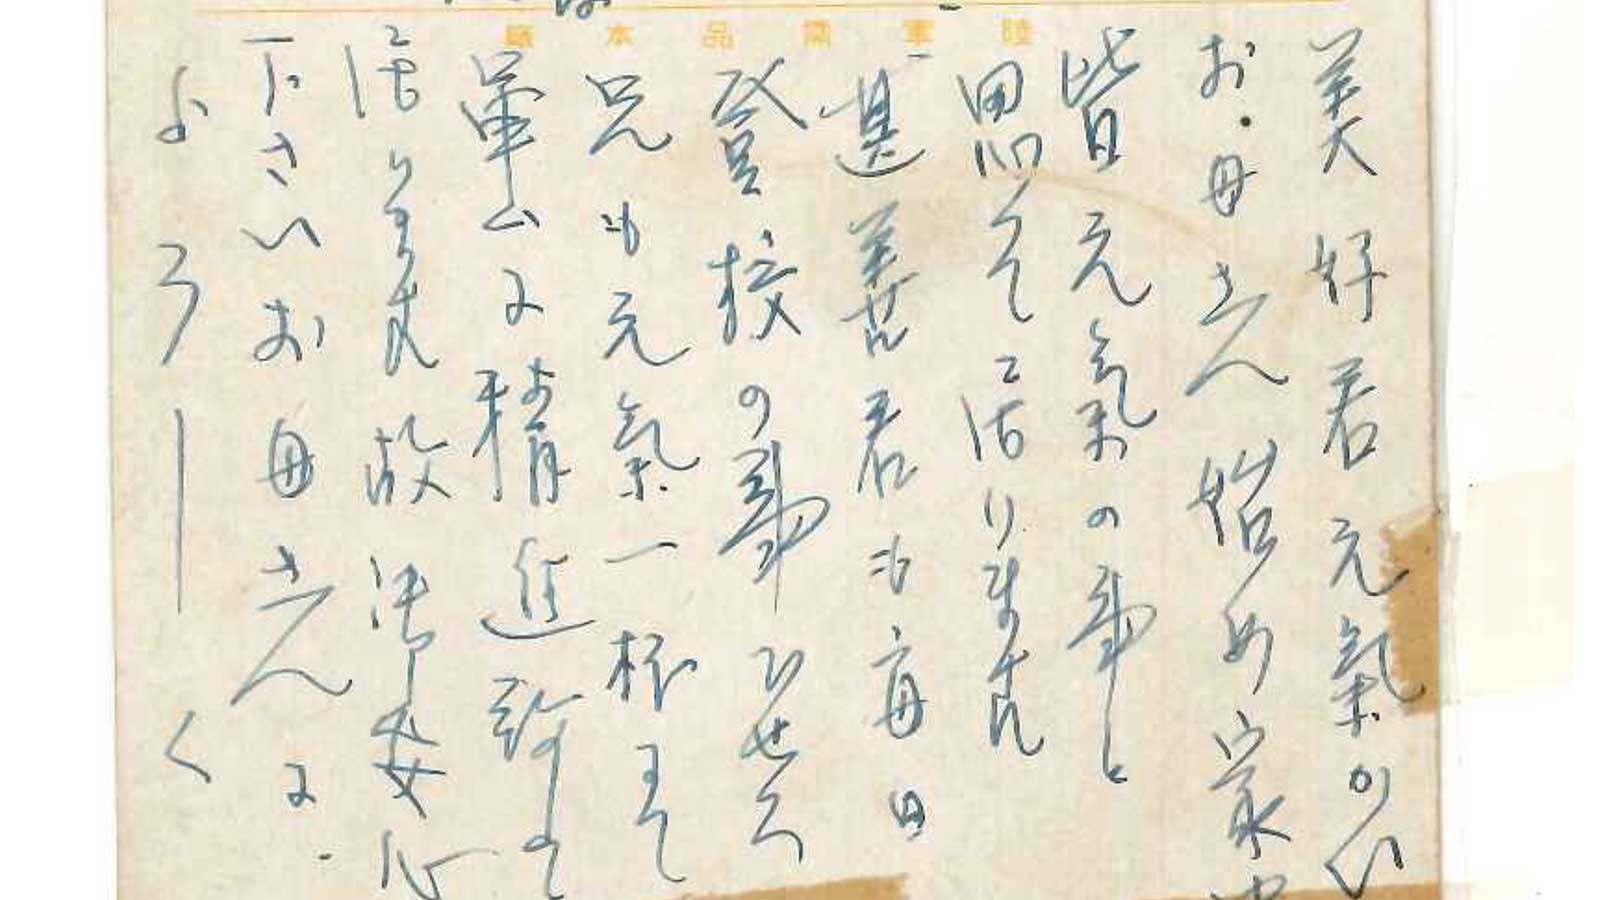 陸軍需品本廠
美好君元氣かい
お母さん始め家中
皆元氣の事と
思って居ります
君も毎日
登校の事でせう
兄も元氣一杯
軍ムに精進致して
居ります故御安心
下さいお母さんに
よろしく